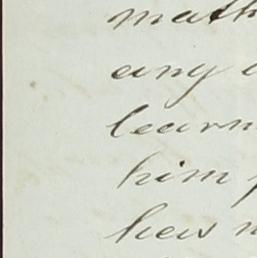 math
any
learn
him
has